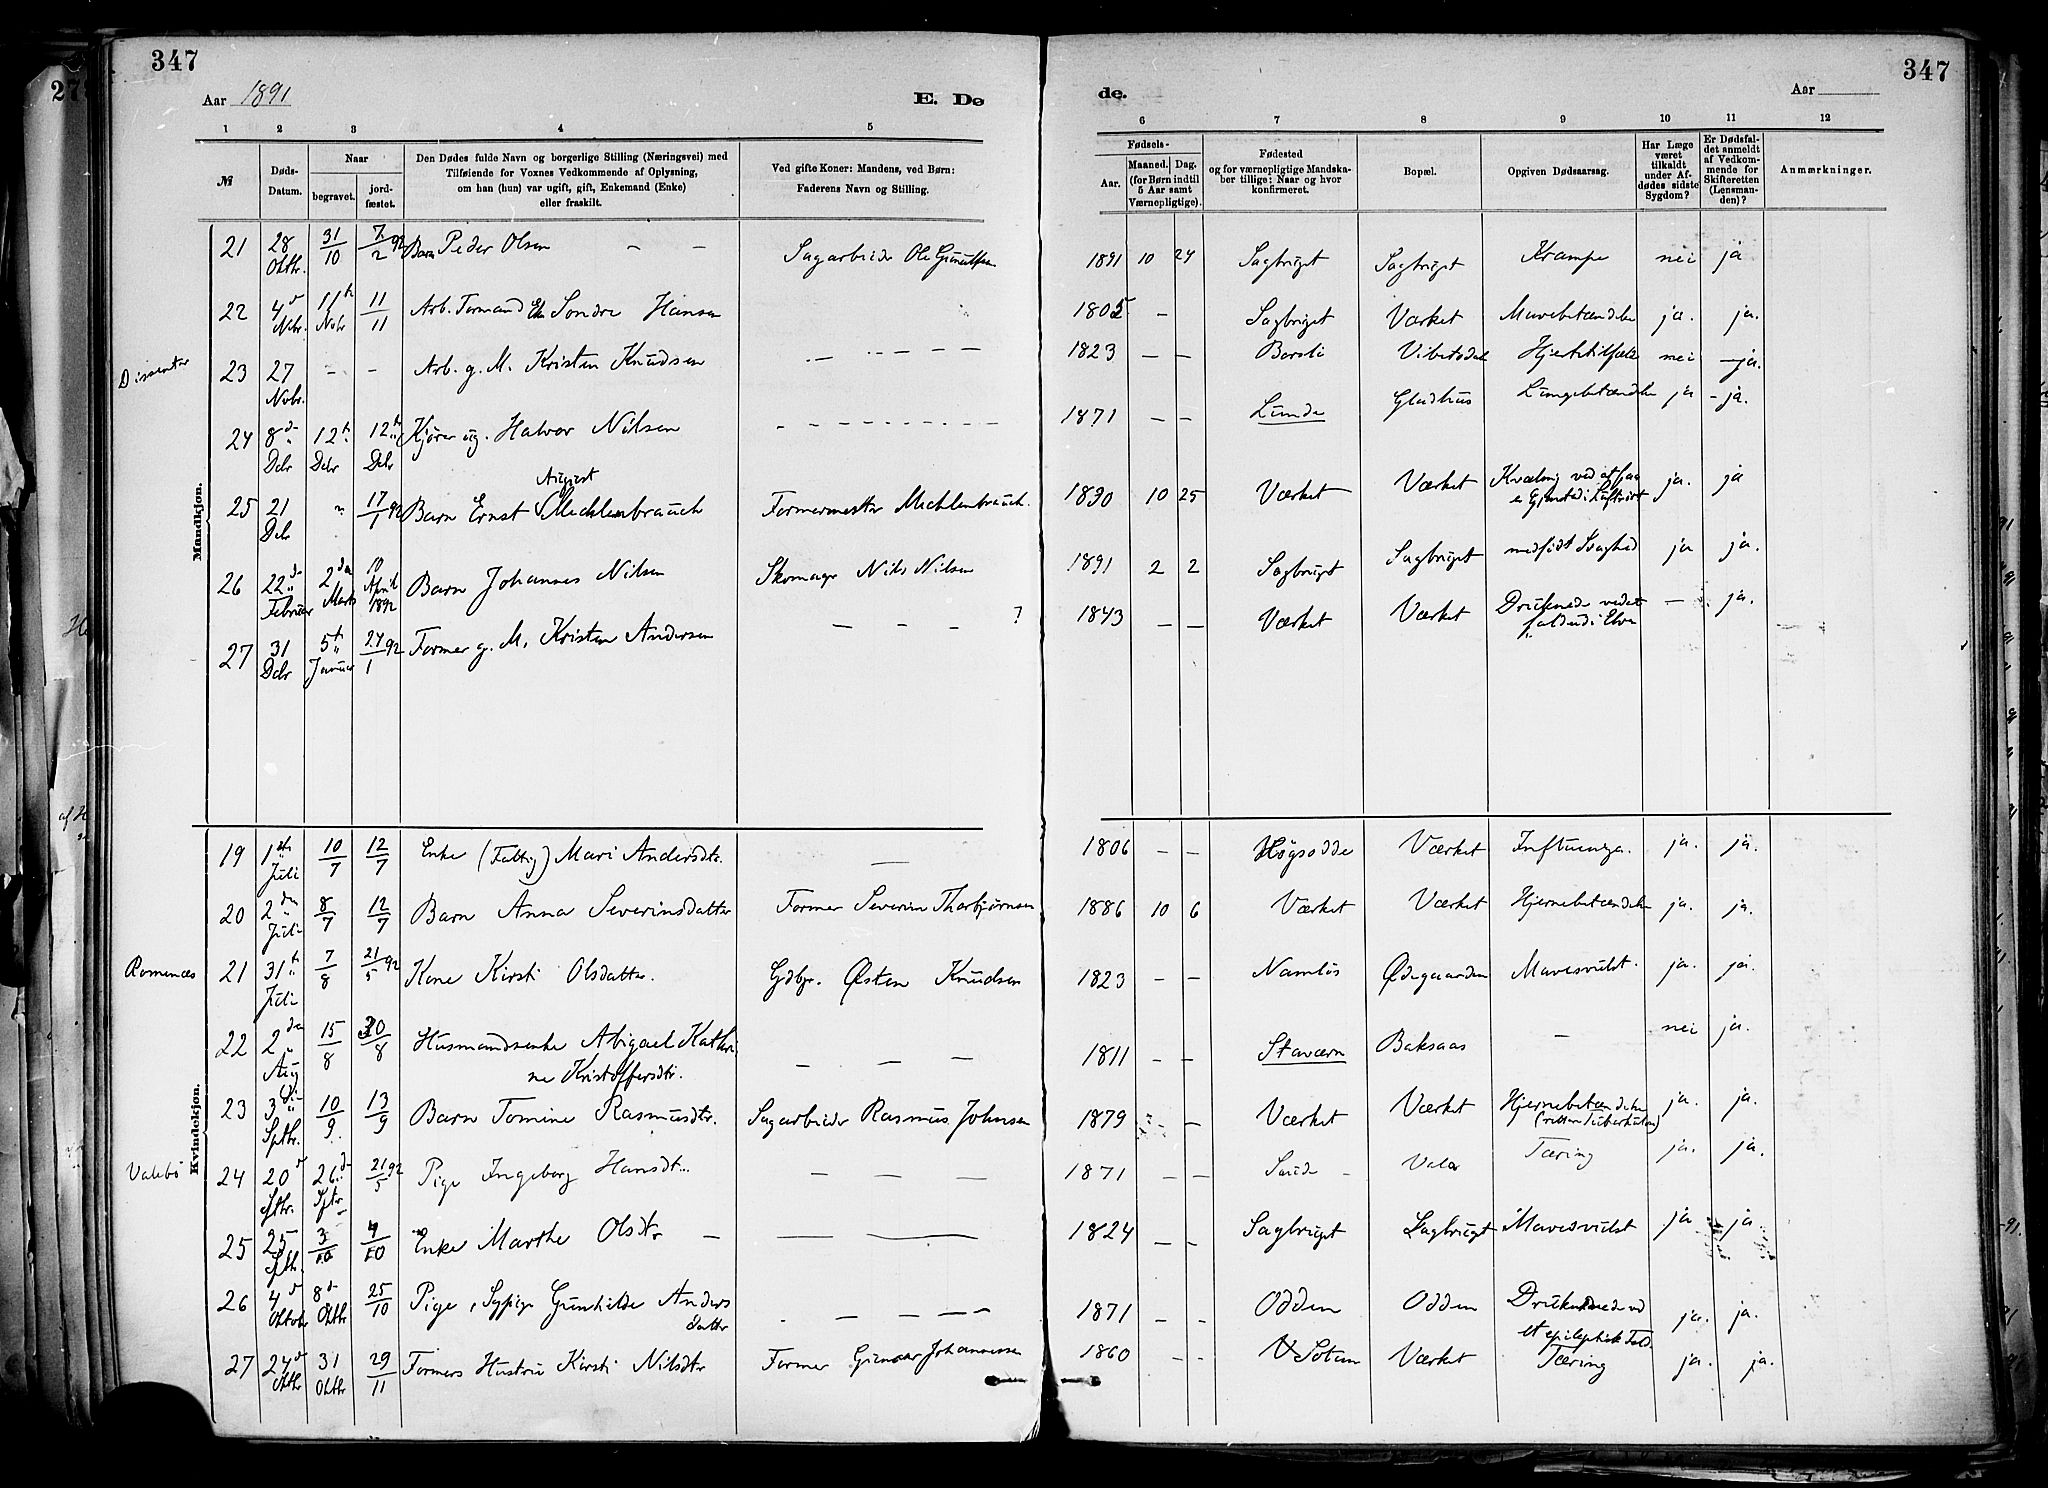 347
Aar 1891
E. Dø
1 2 3 4 5
№
Døds-
Datum.
Naar
begravet.
jord-
fæstet.
Den Dødes fulde Navn og borgerlige Stilling (Næringsvei) med
Tilføiende for Voxnes Vedkommende af Oplysning,
om han (hun) var ugift, gift, Enkemand (Enke)
eller fraskilt.
Ved gifte Koner: Mandens, ved Børn:
Faderens Navn og Stilling.
Mandkjøn.
21 28 Okthr. 31/10 7/2 92 Barn Peder Olsen — — Sagarbeider Ole
22 4d Nvbr. 11te Nvbr 11/11 Arb. Formand Em Sondre Hansen
Dissenter
23 27 Nvbr. - - Arb. g. M. Kristen Knudsen
24 8d Dcbr 12t Dcbr 12te Dcbr Kjører ug. Halvor Nilsen
August
25 21 Dcbr " 17/1 92 Barn Ernst Mechlenbrauch Formermester Mechlenbrauch.
26 22d Februar 2den Marts 10 April 1892 Barn Johannes Nilsen Skomager Nils Nilsen
27 31 Dcbr 5t Januar 24/1 92 Former g. M. Kristen Andersen — — — ?
Kvindekjøn.
19 1ste Juli 10/7 12/7 Enke (Fattig) Mari Andersdtr. —
20 2den Juli 8/7 12/7 Barn Anna Severinsdatter Former Severin Thorbjørnsen
Romenæs
21 31t Juli 7/8 21/5 92 Kone Kirsti Olsdatter. Gdbgr. Østen Knudsen
22 2den Aug 15/8 30/8 Husmandsenke Abigael Kathri-
ne Kristoffersdtr. — — —
23 3die Spthr. 10/9 13/9 Barn Tomine Rasmusdtr. Sagarbeider Rasmus Johnsen
Valebø
24 20d Spthr. 26d Sptr 21/5 92 Pige Ingeborg Hansdt... — — —
25 25 Spthr. 3/10 4/10 Enke Marthe Olsdtr — — —
26 4d Oktobr 8d Okthr 25/10 Pige, Sypige Gunhilde Anders
datter . — — —
27 24d Okthr 31 Okthr 29/11 Formers Hustru Kirsti Nilsdtr Former Gunnar Johannessen
347
de.
Aar
6 7 8 9 10 11 12
Fødsels-
Aar.
Maaned.
Dag.
(for Børn indtil
5 Aar samt
Værnepligtige).
Fødested
og for værnepligtige Mandska-
ber tillige: Naar og hvor
konfirmeret.
Bopæl.
Opgiven Dødsaarsag.
Har Læge
været
tilkaldt
under Af-
dødes sidste
Sygdom?
Er Dødsfal-
det anmeldt
af Vedkom-
mende for
Skifteretten
(Lensman-
den)?
Anmærkninger.
1891 10 24 Sagbruget Sagbruget Krampe nei ja
1805 — Sagbruget Værket Mavebetændelse ja. ja.
1823 — — Borsli Vibetodal Hjertetilfælde nei — ja.
1871 — — Lunde Gladhus Lungebetændelse ja - ja.
1890 10 25 Værket Værket Kvælning ved at faa
en Gjenstand i Luftrøret ja. ja
1891 2 2 Sagbruget Sagbruget medfødt Svaghed ja ja.
1843 — — Værket Værket Druknede ved at
falde ud i Elven — ja.
1806 — — Høgsodde Værket Influenza. ja. ja.
1886 10 6 Værket Værket Hjernebetændelse ja. ja.
1823 — — Namløs Ødegaarden Mavesvulst. ja. ja.
1811 — — Staværn Baksaas — nei ja.
1879 — — Værket Værket Hjernebetændelse ja. ja.
1871 — — Saude — Valø Tæring ja. ja.
1824 — — Sagbruget Sagbruget Mavesvulst ja ja
1871 — — Odden Odden Druknede ved
et epileptisk Fald. ja. ja.
1860 — — V Solum Værket Tæring ja. ja.